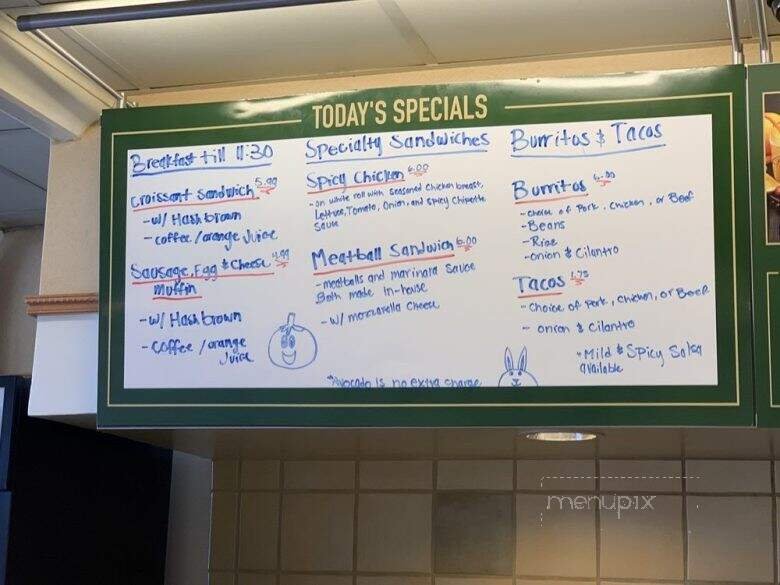 TODAY'S SPECIALS
Breakfast till 11:30
Croissant Sandwich 5.99
- w/ Hashbrown
- coffee/orange Juice
Sausage, Egg & Cheese 4.99
Muffin
- w/ Hashbrown
- Coffee /orange
Juice
Specialty Sandwiches
Spicy Chicken 6.00
- on white roll with seasoned chicken breast,
Lettuce, Tomato, Onion, and Spicy Chipotle
Sauce
Meatball Sandwich 6.00
- meatballs and marinara Sauce
Both made In-house
- w/ mozzarella Cheese
*Avocado is no extra charge
Burritos & Tacos
Burritos
- choice of Pork, Chicken, or Beef
- Beans
- Rice
- onion & Cilantro
Tacos 1.75
- Choice of Pork, Chicken, or Beef
- onion & Cilantro
*Mild & Spicy Salsa
available
menupix